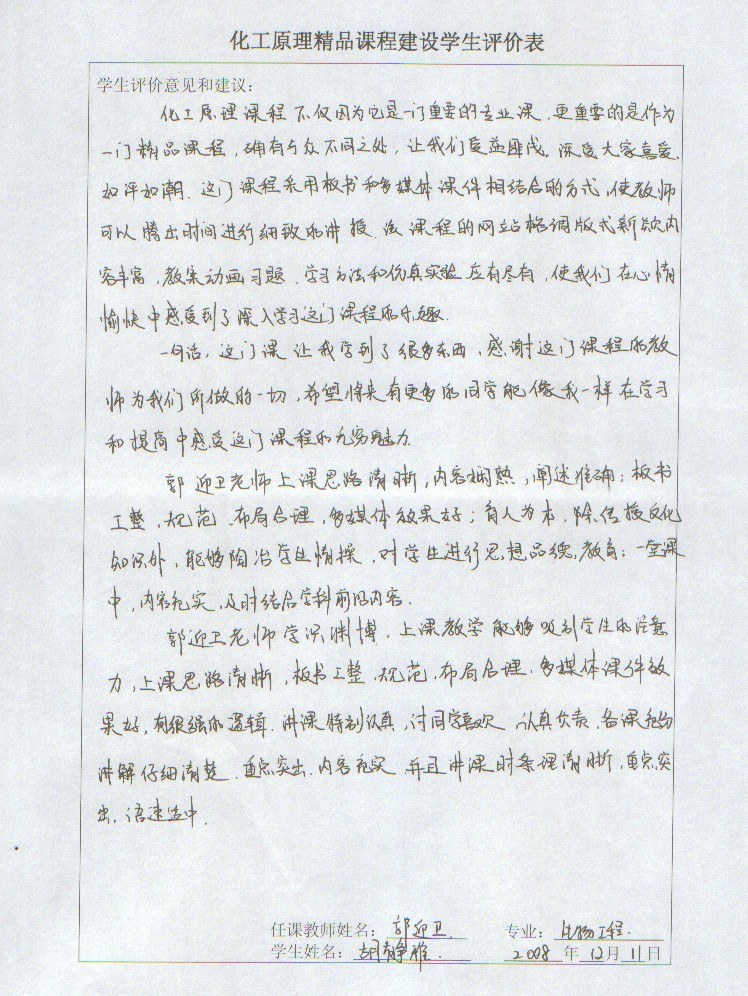 化工原理精品课程建设学生评价表
学生评价意见和建议:
化工原理课程不仅因为它是一门重要的专业课,更重要的是作为
一门精品课程,确有与众不同之处,让我们受益匪浅,深受大家喜爱,
如评如潮.这门课程采用板书和多媒体课件相结合的方式,使教师
可以腾出时间进行细致的讲授.该课程的网站格调版式新颖内
容丰富,教案动画习题、学习方法和仿真实验应有尽有,使我们在心情
愉快中感受到了深入学习这门课程的乐趣.
一句话,这门课让我学到了很多东西,感谢这门课程的教
师为我们所做的一切,希望将来有更多的同学能像我一样在学习
和提高中感受这门课程的无穷魅力.
郭迎卫老师上课思路清晰,内容娴熟,阐述准确;板书
工整、规范、布局合理,多媒体效果好;育人为本,除传授文化
知识外,能够陶冶学生情操,对学生进行思想品德教育;一堂课
中,内容充实,及时结合学科前沿内容.
郭迎卫老师学识渊博,上课教学能够吸引学生的注意
力,上课思路清晰,板书工整、规范,布局合理,多媒体课件效
果好,有很强的逻辑.讲课特别认真,讨同学喜欢,认真负责,备课充分
讲解仔细清楚.重点突出.内容充实,并且讲课时条理清晰,重点突
出,语速适中.
任课教师姓名:郭迎卫. 专业:生物工程.
学生姓名:胡静雅. 2008年12月11日